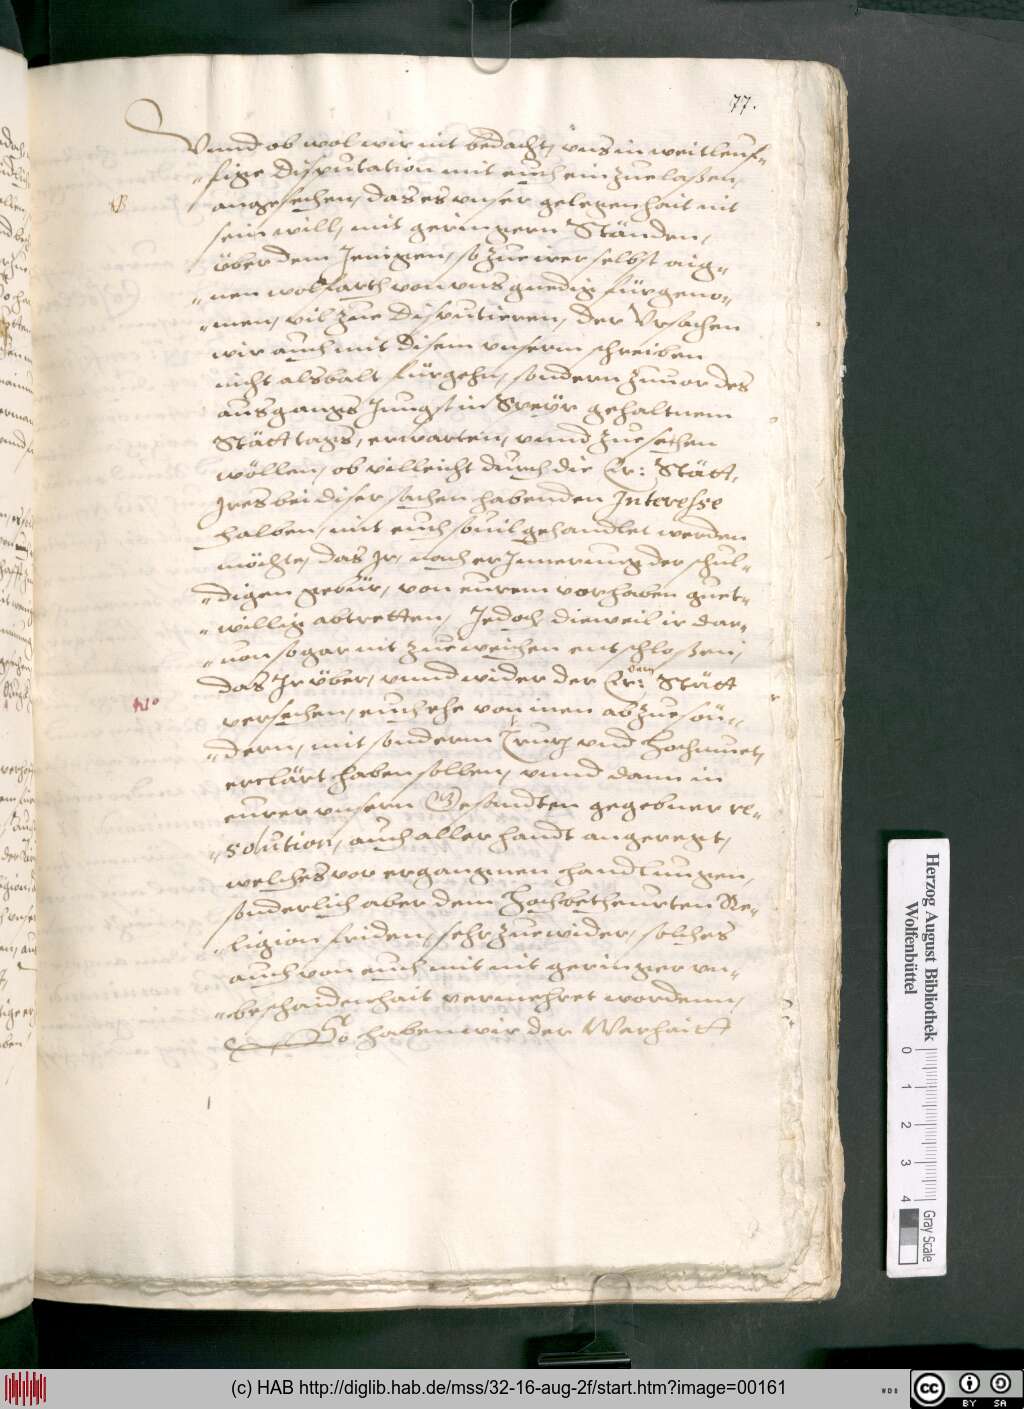 77.
Vnnd ob wol wir nit bedacht, vns in weitleuf-
fige Disputation mit euch einzuelaßen,
angesechen, das es vnser gelegenhait nit
sein will, mit geringern Ständen,
über dem Jenigen, so zue irer selbst aig-
nen wolfarth von vns gnedig fürgeno-
men, vil zue Disputieren, der Vrsachen
wir auch mit disem vnserm schreiben
nicht alsbalt fürgehn, sondern zuuor des
ausgangs Jungst in Speyr gehaltnem
Stätt tags, erwarten, vnnd zue sechen
wöllen, ob villeicht durch die Er: Stätt,
Jres bei diser sachen habenden Interesse
halben, mit euch souil gehandlet werden
möchte, das Jr, noch erJnnerung der schul-
digen gebür, von eurem vorhaben guet-
willig abtretten, Jedoch dieweil ir dar-
uon sogar nit zue weichen entschloßen,
das Jr über, vnnd wider der Er: Stätt
versechen, euch ehe von inen abzuesön-
dern, mit sonderm Truz vnd Hochmuet,
erclärt haben sollen, vnnd dann in
eurer vnsern Gesandten gegebner re-
solution, auch allerhandt angeregt,
welches vor ergangnen handlungen,
sonderlich aber dem Hochbetheurten Re-
ligion friden, sehr zuewider, solches
auch von euch mit nit geringer vn-
beschaidenhait vermehret wordenn,
So haben wir der Warhaitt
Herzog August Bibliothek
Wolfenbüttel
0 1 2 3 4
Gray Scale
(c) HAB http://diglib.hab.de/mss/32-16-aug-2f/start.htm?image=00161
WDB
cc BY SA